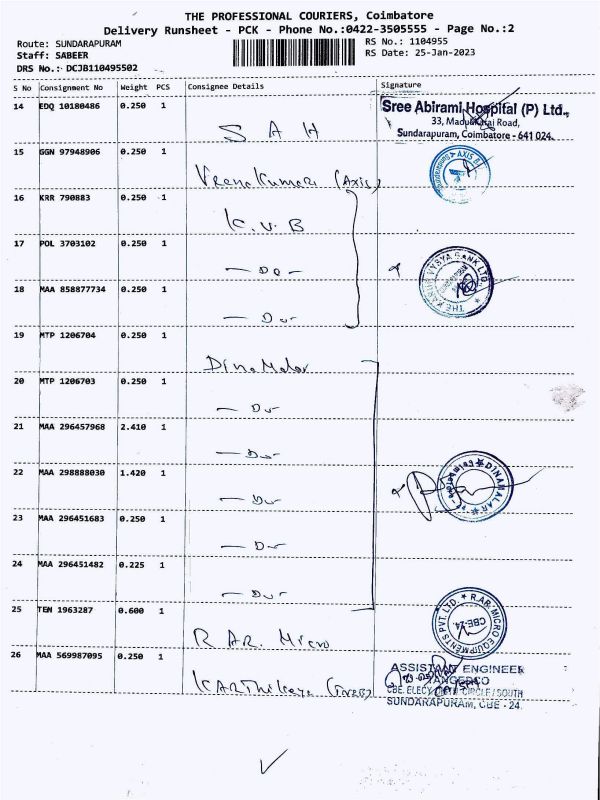 THE PROFESSIONAL COURIERS, Coimbatore
Delivery Runsheet - PCK - Phone No.:0422-3505555 - Page No.:2
Route: SUNDARAPURAM RS No.: 1104955
Staff: SABEER RS Date: 25-Jan-2023
DRS No.: DCJB110495502
S No Consignment No Weight PCS Consignee Details Signature
14 EDQ 10180486 0.250 1
S A H
Sree Abirami Hospital (P) Ltd.,
33, Madukkarai Road,
Sundarapuram, Coimbatore - 641 024.
15 GGN 97948906 0.250 1
Veena Kumari (Axis)
AXIS
16 KRR 790883 0.250 1
K.V.B
17 POL 3703102 0.250 1
- Do -
THE KARUR VYSYA BANK LTD
18 MAA 858877734 0.250 1
- Do -
19 MTP 1206704 0.250 1
Dina Malar
20 MTP 1206703 0.250 1
- Do -
21 MAA 296457968 2.410 1
- Do -
22 MAA 298888030 1.420 1
- Do -
DINAMALAR
23 MAA 296451683 0.250 1
- Do -
24 MAA 296451482 0.225 1
- Do -
25 TEN 1963287 0.600 1
R AR. Micro
R.AR. MICRO EQUIPMENTS PVT. LTD.
CBE-24
26 MAA 569987095 0.250 1
ASSISTANT ENGINEER
TANGEDCO
SUNDARAPURAM, CBE - 24.